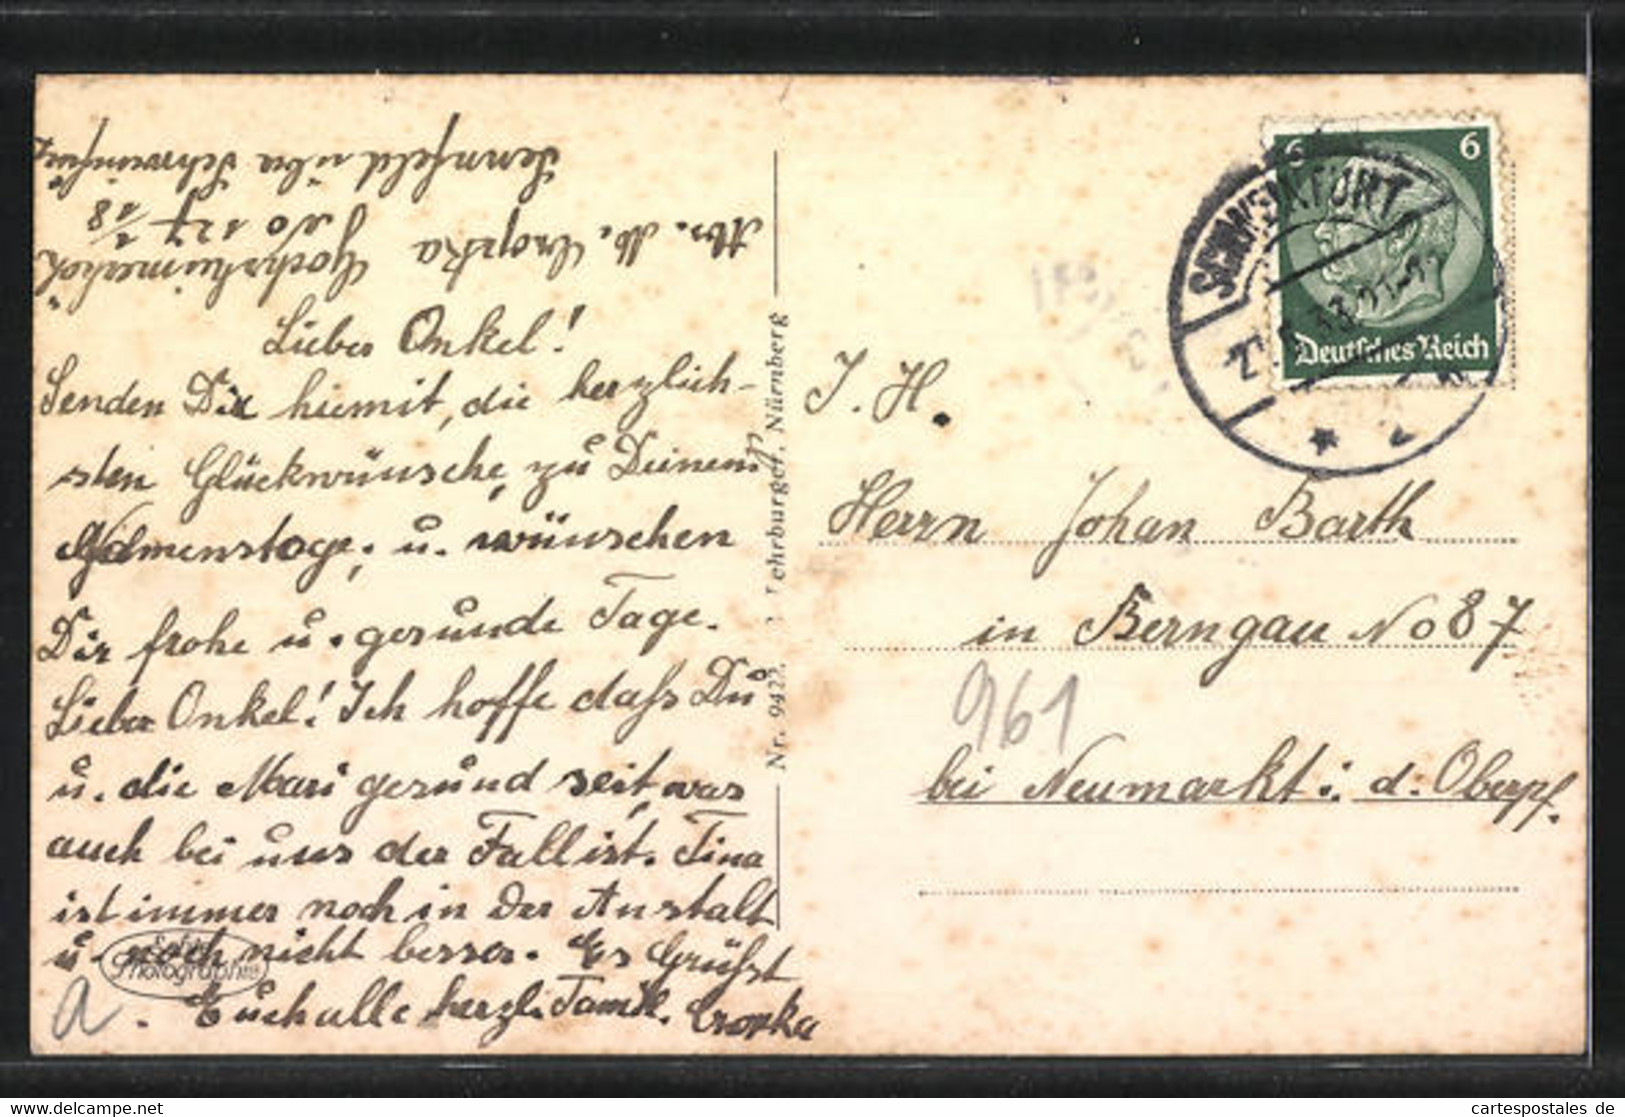 Sennfeld über Schweinfurt
Abs. M. Cropka Gochsheimerstr.
No 127 1/8
Lieber Onkel!
Senden Dir hiemit, die herzlich-
sten Glückwünsche, zu Deinem
Namenstage, u. wünschen
Dir frohe u. gesunde Tage.
Lieber Onkel! Ich hoffe dafs Du
u. die Mari gesund seit, was
auch bei uns der Fall ist. Tina
ist immer noch in der Anstalt
u. noch nicht besser. Es Grüfst
Euch alle herzl. Famil. Cropka
a
Photographie
Nr. 942
Fehrburger, Nürnberg
SCHWEINFURT
33.21-
* 2
6 6
Deutsches Reich
J. H.
Herrn Johan Barth
in Berngau No 87
961
bei Neumarkt i. d. Oberpf.
www.cartespostales.de
cartespostales de